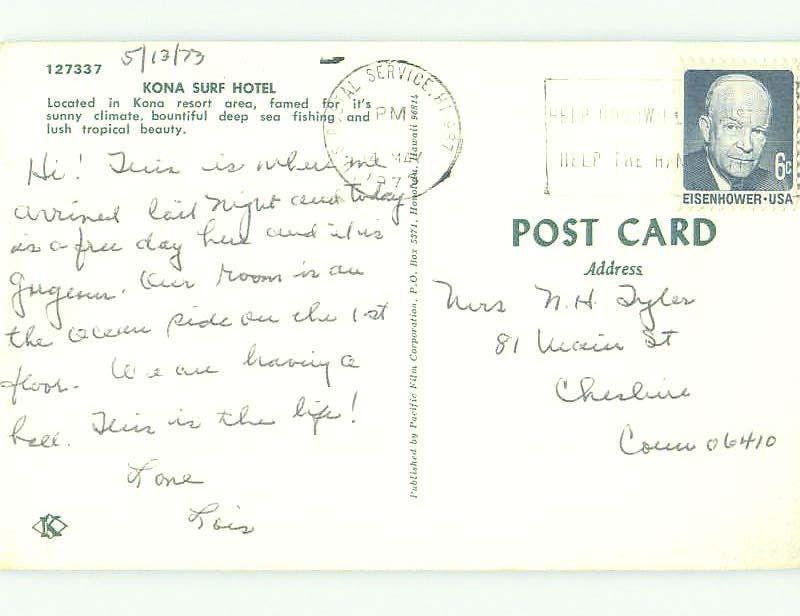 127337 5/13/73
KONA SURF HOTEL
Located in Kona resort area, famed for it's
sunny climate, bountiful deep sea fishing and
lush tropical beauty.
Hi! This is where we
arrived last night and today
is a free day here and it is
gorgeous. Our room is on
the ocean side on the 1st
floor. We are having a
ball. This is the life!
Love
Lois
K
Published by Pacific Film Corporation, P.O. Box 5271, Honolulu, Hawaii 96814
POSTAL SERVICE, HI 967
PM
MAY
197
HELP
HELP THE HAN
6c
EISENHOWER·USA
POST CARD
Address
Mrs N.H. Tyler
81 Main St
Cheshire
Conn 06410